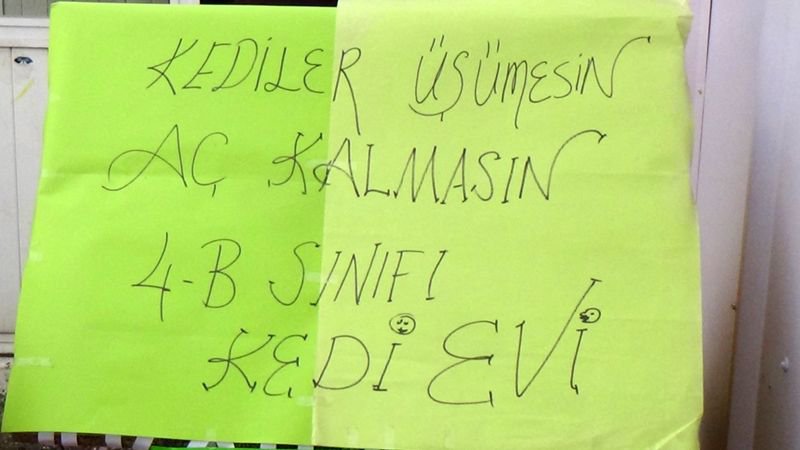 KEDİLER ÜŞÜMESİN
AÇ KALMASIN
4-B SINIFI
KEDİ EVİ